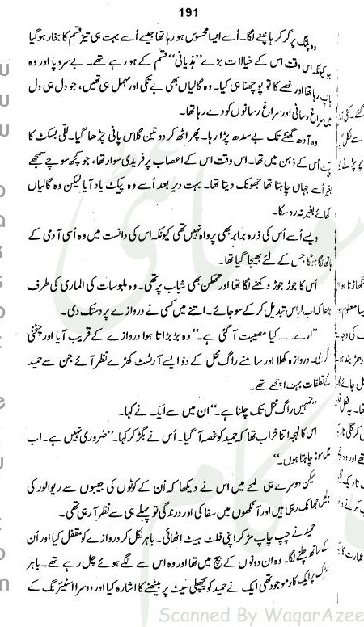 191
وہ پلنگ پر گر کر ہانپنے لگا۔ اُسے ایسا محسوس ہو رہا تھا جیسے اُسے بہت ہی تیز قسم کا بخار ہو گیا
ہو کیونکہ اس وقت اس کے خیالات بڑے ”ہذیانی“ قسم کے ہو رہے تھے۔ بے سروپا اور وہ
رہا تھا اور غصے کا تو پوچھنا ہی کیا۔ وہ گالیاں بھی بے تکی اور مہمل ہی تھیں، جو دل ہی دل
میں سراغ رسانی اور سراغ رسانوں کو دے رہا تھا۔
وہ آدھ گھنٹے تک بے سدھ پڑا رہا۔ پھر اٹھ کر دو تین گلاس پانی چڑھا گیا۔ نقلی بسکٹ کا
اُس کے ذہن میں تھا۔ اس وقت اس کے اعصاب پر فریدی سوار تھا، جو کچھ سوچے سمجھے
بغیر اُسے جہاں چاہتا تھا جھونک دیتا تھا۔ بہت دیر بعد اُسے وہ پیکٹ یاد آیا لیکن وہ گالیاں
بغیر نہ رہ سکا۔
ویسے اُسے اُس کی ذرہ برابر بھی پرواہ نہیں تھی کیونکہ اس کی دانست میں وہ اُسی آدمی کے
جس کے لئے بھیجا گیا تھا۔
اُس کا جوڑ جوڑ دُکھنے لگا تھا اور تھکن بھی شباب پر تھی۔ وہ ملبوسات کی الماری کی طرف
لباس تبدیل کر کے سو جائے۔ اتنے میں کسی نے دروازے پر دستک دی۔
”ارے.... کیا مصیبت آ گئی ہے۔“ وہ بڑبڑاتا ہوا دروازے کے قریب آیا اور چٹخنی
گرا دی۔ دروازہ کھلا اور سامنے راگ محل کے دو ایسے آرٹسٹ کھڑے نظر آئے جن سے حمید
کے تعلقات بہت اچھے تھے۔
”تمہیں راگ محل تک چلنا ہے۔“ ان میں سے ایک نے کہا۔
اس کا لہجہ اتنا خراب تھا کہ حمید کو غصہ آ گیا۔ اُس نے بگڑ کر کہا۔ ”ضروری نہیں ہے۔ اب
چاہتا ہوں۔“
لیکن دوسرے ہی لمحے میں اس نے دیکھا کہ اُن کے کوٹوں کی جیبوں سے ریوالور کی
جھانک رہی ہیں اور آنکھوں میں سفاکی اور درندگی تو پہلے ہی سے نظر آ رہی تھی۔
حمید نے چپ چاپ مڑ کر اپنی فلٹ ہیٹ اٹھائی۔ باہر نکل کر دروازے کو مقفل کیا اور اُن
کے ساتھ چلنے لگا۔ وہ ان دونوں کے بیچ میں تھا اور وہ اس سے لگے ہوئے چل رہے تھے۔ باہر
ایک کار موجود تھی ایک نے حمید کو پچھلی سیٹ پر بیٹھنے کا اشارہ کیا اور دوسرا اسٹیئرنگ کے
Scanned By WaqarAzee